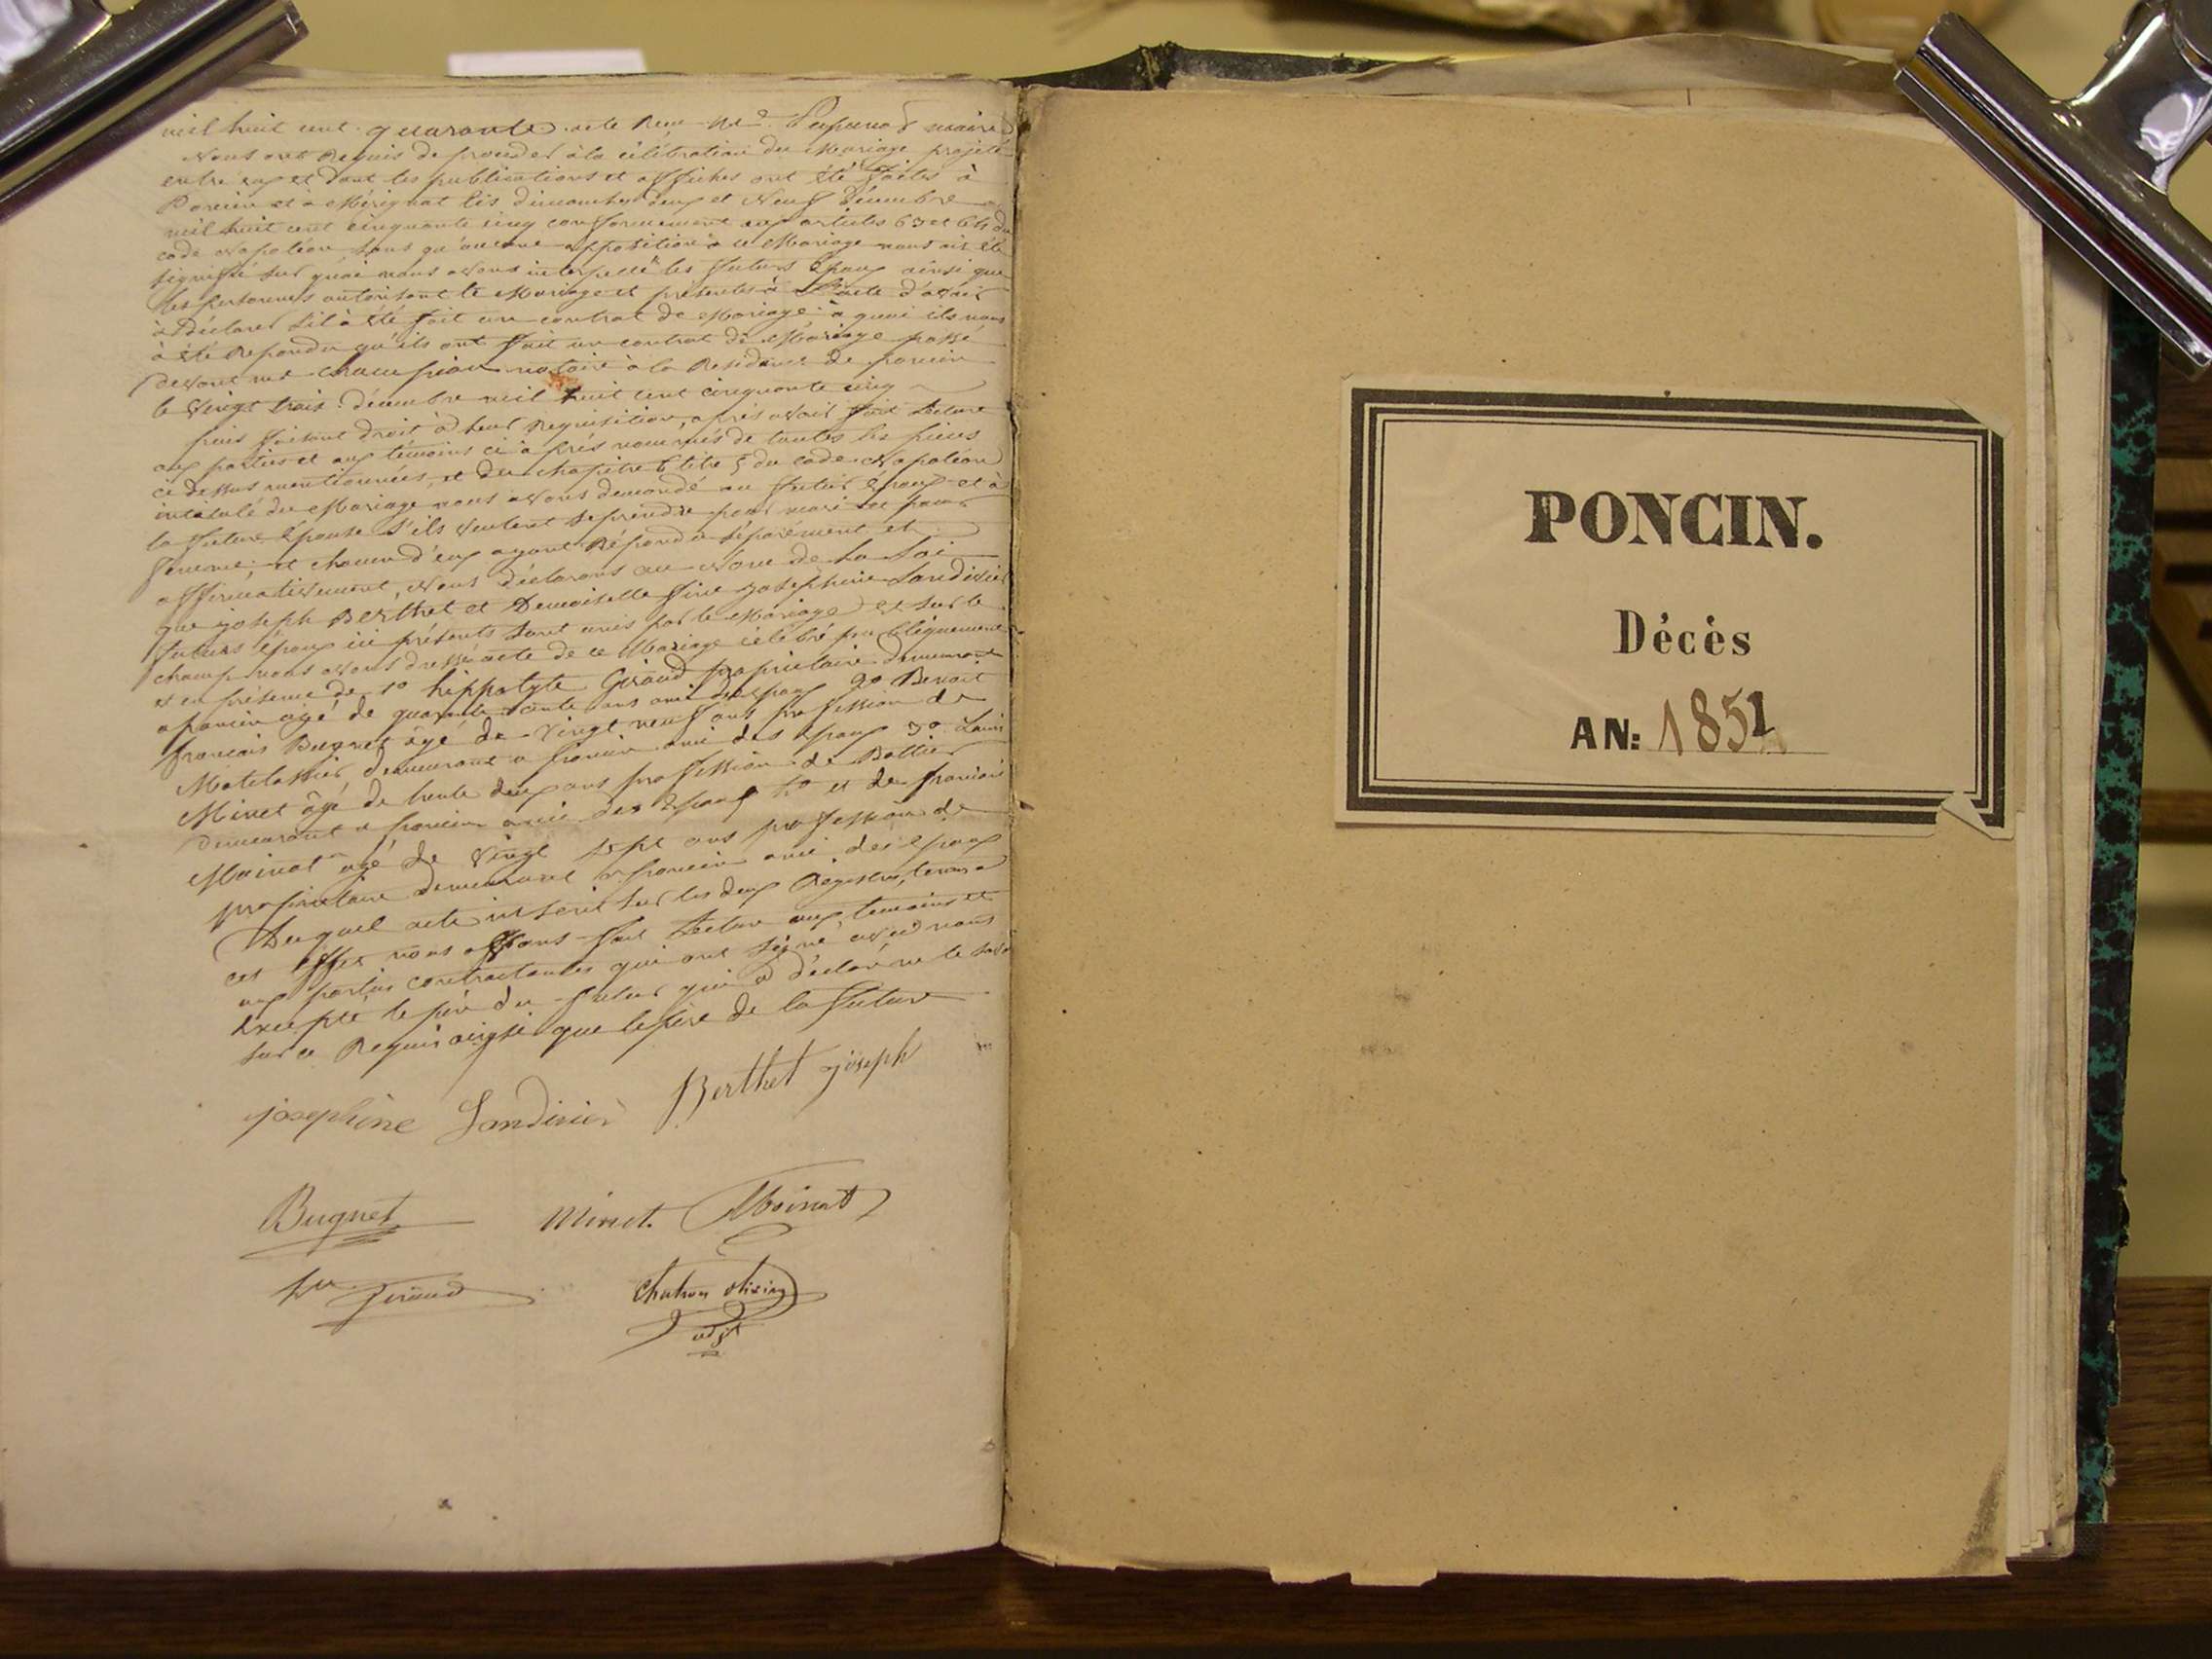 mil huit cent quarante acte Reçu Me maire
Nous ont Requis de proceder à la célébration du Mariage projeté
entre eux et dont les publications et affiches ont été faites à
Poncin et à Mérignat les dimanches deux et Neuf décembre
mil huit cent cinquante cinq conformement aux articles 63 et 64 du
code Napoléon, sans qu'aucune opposition à ce Mariage nous ait été
signifié sur quoi nous avons interpellé les futurs Epoux ainsi que
les personnes autorisant le Mariage et présentes à L'acte d'avoir
à Déclarer s'il à été fait un contrat de Mariage à quoi ils nous
à été Repondu qu'ils ont fait un contrat de Mariage passé
devant me notaire à la Résidence de poncin
le Vingt trois décembre mil huit cent cinquante cinq
puis faisant droit à leur Requisition, après avoir fait Lecture
aux parties et aux témoins ci après nommés de toutes les pièces
ci dessus mentionnées, et du chapitre 6 titre 5 du code Napoléon
intitulé du Mariage nous avons demandé au futur Epoux et à
la future Epouse s'ils veulent se prendre pour mari et pour
femme; et chacun d'eux ayant Répondu séparément et
affirmativement, Nous déclarons au Nom de La Loi
que joseph Berthet et Demoiselle fine josephine Landinier
futurs époux ici présents sont unis par le Mariage et sur le
champ nous avons dressé acte de ce Mariage célébré publiquement
et en présence de 1o hippolyte Giraud propriétaire demeurant
a poncin âgé de quarante ans ami des époux 2o Benoit
francois Bugnet âgé de Vingt neuf ans profession de
Matelassier demeurant a poncin ami des époux 3o Louis
Minet âgé de trente deux ans profession de Bottier
demeurant a poncin ami des Epoux 4o et de francois
Moinat agé de Vingt sept ans profession de
propriétaire demeurant a poncin ami des époux
Duquel acte inscrit sur les deux Registres, tenus a
cet effet nous avons fait Lecture aux, témoins et
aux parties contractantes qui ont signé avec nous
Excepté le père du futur qui a déclaré ne le savoir
sur ce Requis aingsi que le père de la future
josephine Landinier Berthet joseph
Bugnet Minet Moinat
Giraud Chatron
adjt
PONCIN.
Décès
AN: 1851